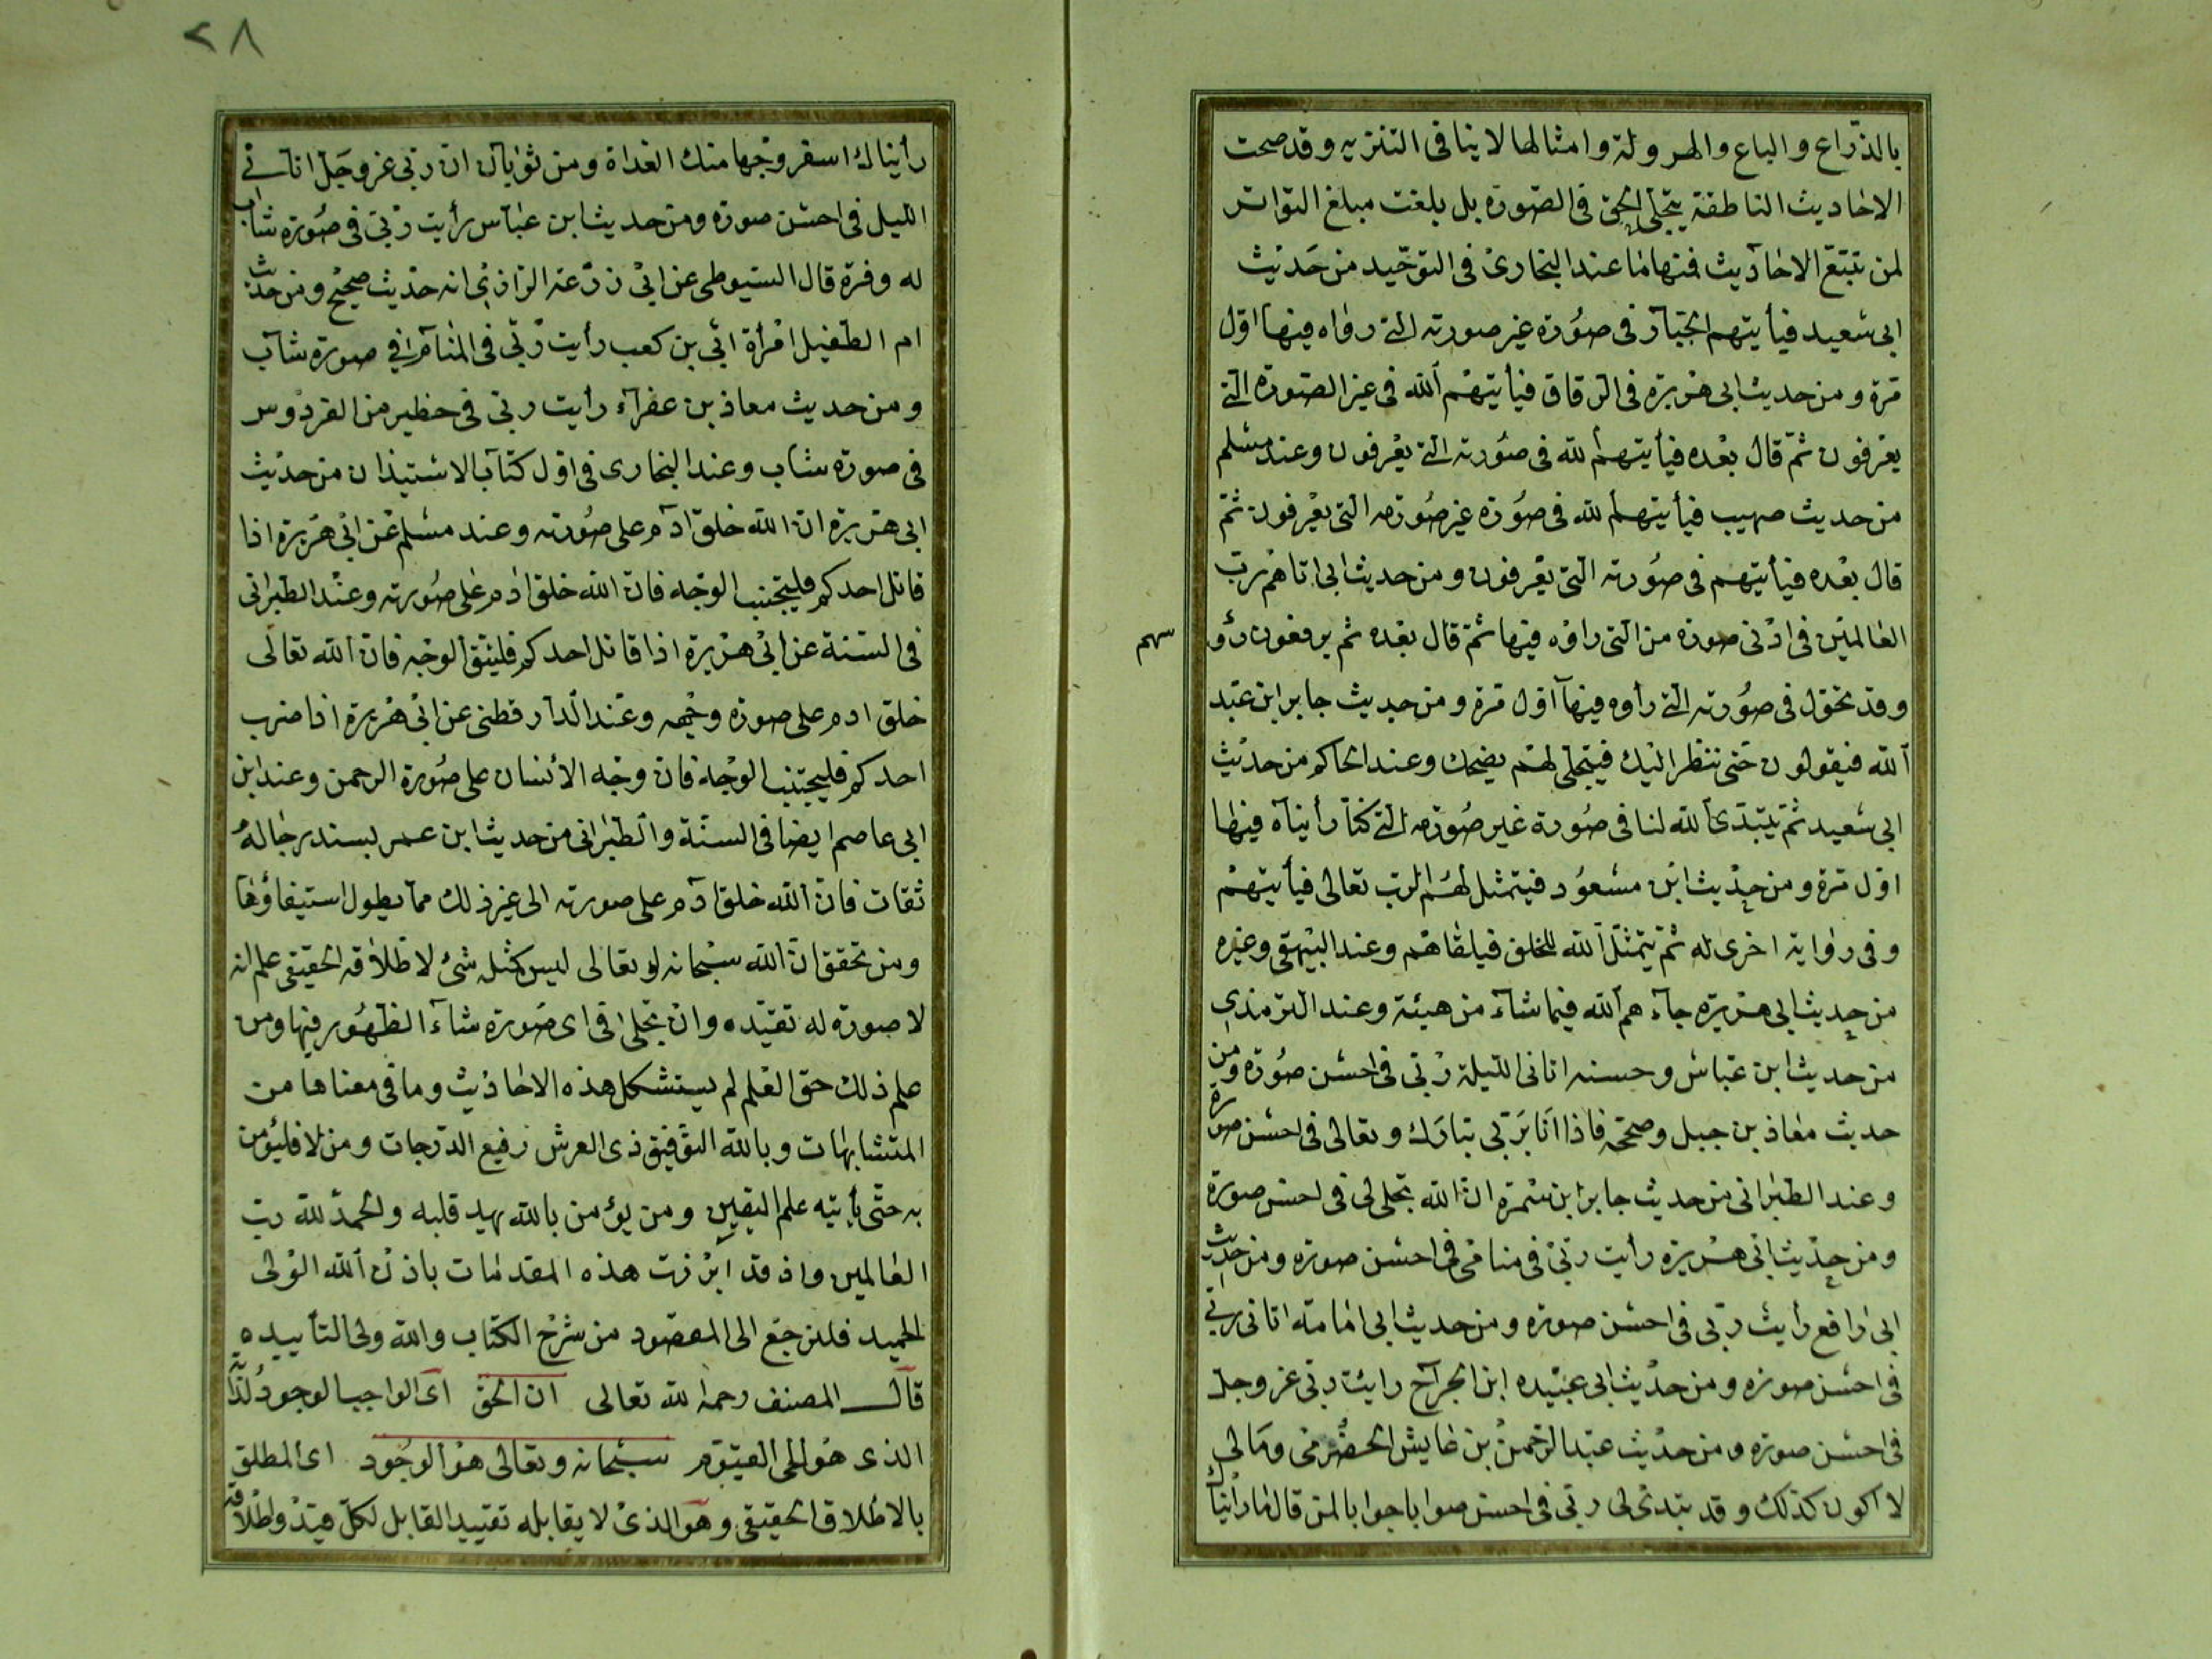 بالذراع والباع والهرولة وامثالها لا ينافى التنزيه وقد صحت
الاحاديث الناطقة بتجلى الحق فى الصورة بل بلغت مبلغ التواتر
لمن تتبع الاحاديث فمنها ما عند البخارى فى التوحيد من حديث
ابى سعيد فيأتيهم الجبار فى صورة غير صورته التى رواه فيها اول
مرة ومن حديث ابى هريرة فى الرقاق فيأتيهم الله فى غير الصورة التى
يعرفون ثم قال بعده فيأتيهم الله فى صورته التى يعرفون وعند مسلم
من حديث صهيب فيأتيهم الله فى صورة غير صورته التى يعرفون ثم
قال بعده فيأتيهم فى صورته التى يعرفون ومن حديث ابى اتاهم رب
العالمين فى ادنى صورة من التى راوه فيها ثم قال بعده ثم يرفعون رؤ
سهم
وقد تحول فى صورته التى رأوه فيها اول مرة ومن حديث جابر ابن عبد
الله فيقولون حتى ننظر اليك فيتجلى لهم يضحك وعند الحاكم من حديث
ابى سعيد ثم يتبدى الله لنا فى صورة غير صورته التى كنا رأيناه فيها
اول مرة ومن حديث ابن مسعود فيتمثل لهم الرب تعالى فيأتيهم
وفى رواية اخرى له ثم يتمثل الله للخلق فيلقاهم وعند البيهقى وغيره
من حديث ابى هريرة جاءهم الله فيما شاء من هيئة وعند الترمذى
من حديث ابن عباس وحسنه اتانى الليلة ربى فى احسن صورة ومن
حديث معاذ بن جبل وصححه فاذا انا بربى تبارك وتعالى فى احسن صورة
وعند الطبرانى من حديث جابر ابن سمرة ان الله تجلى لى فى احسن صورة
ومن حديث ابى هريرة رأيت ربى فى منامى فى احسن صورة ومن حديث
ابى رافع رأيت ربى فى احسن صورة ومن حديث ابى امامة اتانى ربى
فى احسن صورة ومن حديث ابى عبيده ابن الجراح رايت ربى عز وجل
فى احسن صورة ومن حديث عبد الرحمن بن عايش الحضرمى ومالى
لا اكون كذلك وقد تبدى لى ربى فى احسن صورة قال ما رأيناك
٢٨
رأيناك اسفر وجها منك الغداة ومن ثوبان ان ربى عز وجل اتانى
الليل فى احسن صورة ومن حديث ابن عباس رأيت ربى فى صورة شاب
له وفرة قال السيوطى عن ابى زرعة الرازى انه حديث صحيح ومن حديث
ام الطفيل امرأة ابى بن كعب رأيت ربى فى المنام فى صورة شاب
ومن حديث معاذ بن عفراء رأيت ربى فى حظير من الفردوس
فى صورة شاب وعند البخارى فى اول كتاب الاستيذان من حديث
ابى هريرة ان الله خلق آدم على صورته وعند مسلم عن ابى هريرة اذا
قاتل احدكم فليتجنب الوجه فان الله خلق ادم على صورته وعند الطبرانى
فى السنة عن ابى هريرة اذا قاتل احدكم فليتق الوجه فان الله تعالى
خلق ادم على صورة وجهه وعند الدارقطنى عن ابى هريرة اذا ضرب
احدكم فليجتنب الوجه فان وجه الانسان على صورة الرحمن وعند ابن
ابى عاصم ايضا فى السنة والطبرانى من حديث ابن عمر بسند رجاله
ثقات فان الله خلق آدم على صورته الى غير ذلك مما يطول استيفاؤها
ومن تحقق ان الله سبحانه وتعالى ليس كمثله شئ لاطلاقه الحقيقى علم انه
لا صورة له تقيده وان تجلى فى اى صورة شاء الظهور فيها ومن
علم ذلك حق العلم لم يستشكل هذه الاحاديث وما فى معناها من
المتشابهات وبالله التوفيق ذى العرش رفيع الدرجات ومن لا فليؤمن
به حتى يأتيه علم اليقين ومن يؤمن بالله يهد قلبه والحمد لله رب
العالمين واذ قد ابرزت هذه المقدمات باذن الله الولى
الحميد فلنرجع الى المقصود من شرح الكتاب والله ولى التأييده
قال المصنف رحمه الله تعالى ان الحق اى الواجب الوجود لذاته
الذى هو الحى القيوم سبحانه وتعالى هو الوجود اى المطلق
بالاطلاق الحقيقى وهو الذى لا يقابله تقييد القابل لكل قيد واطلاقه